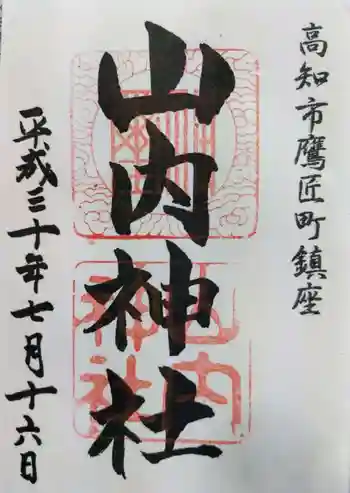 高知市鷹匠町鎮座
山内神社
平成三十年七月十六日
山内
神社